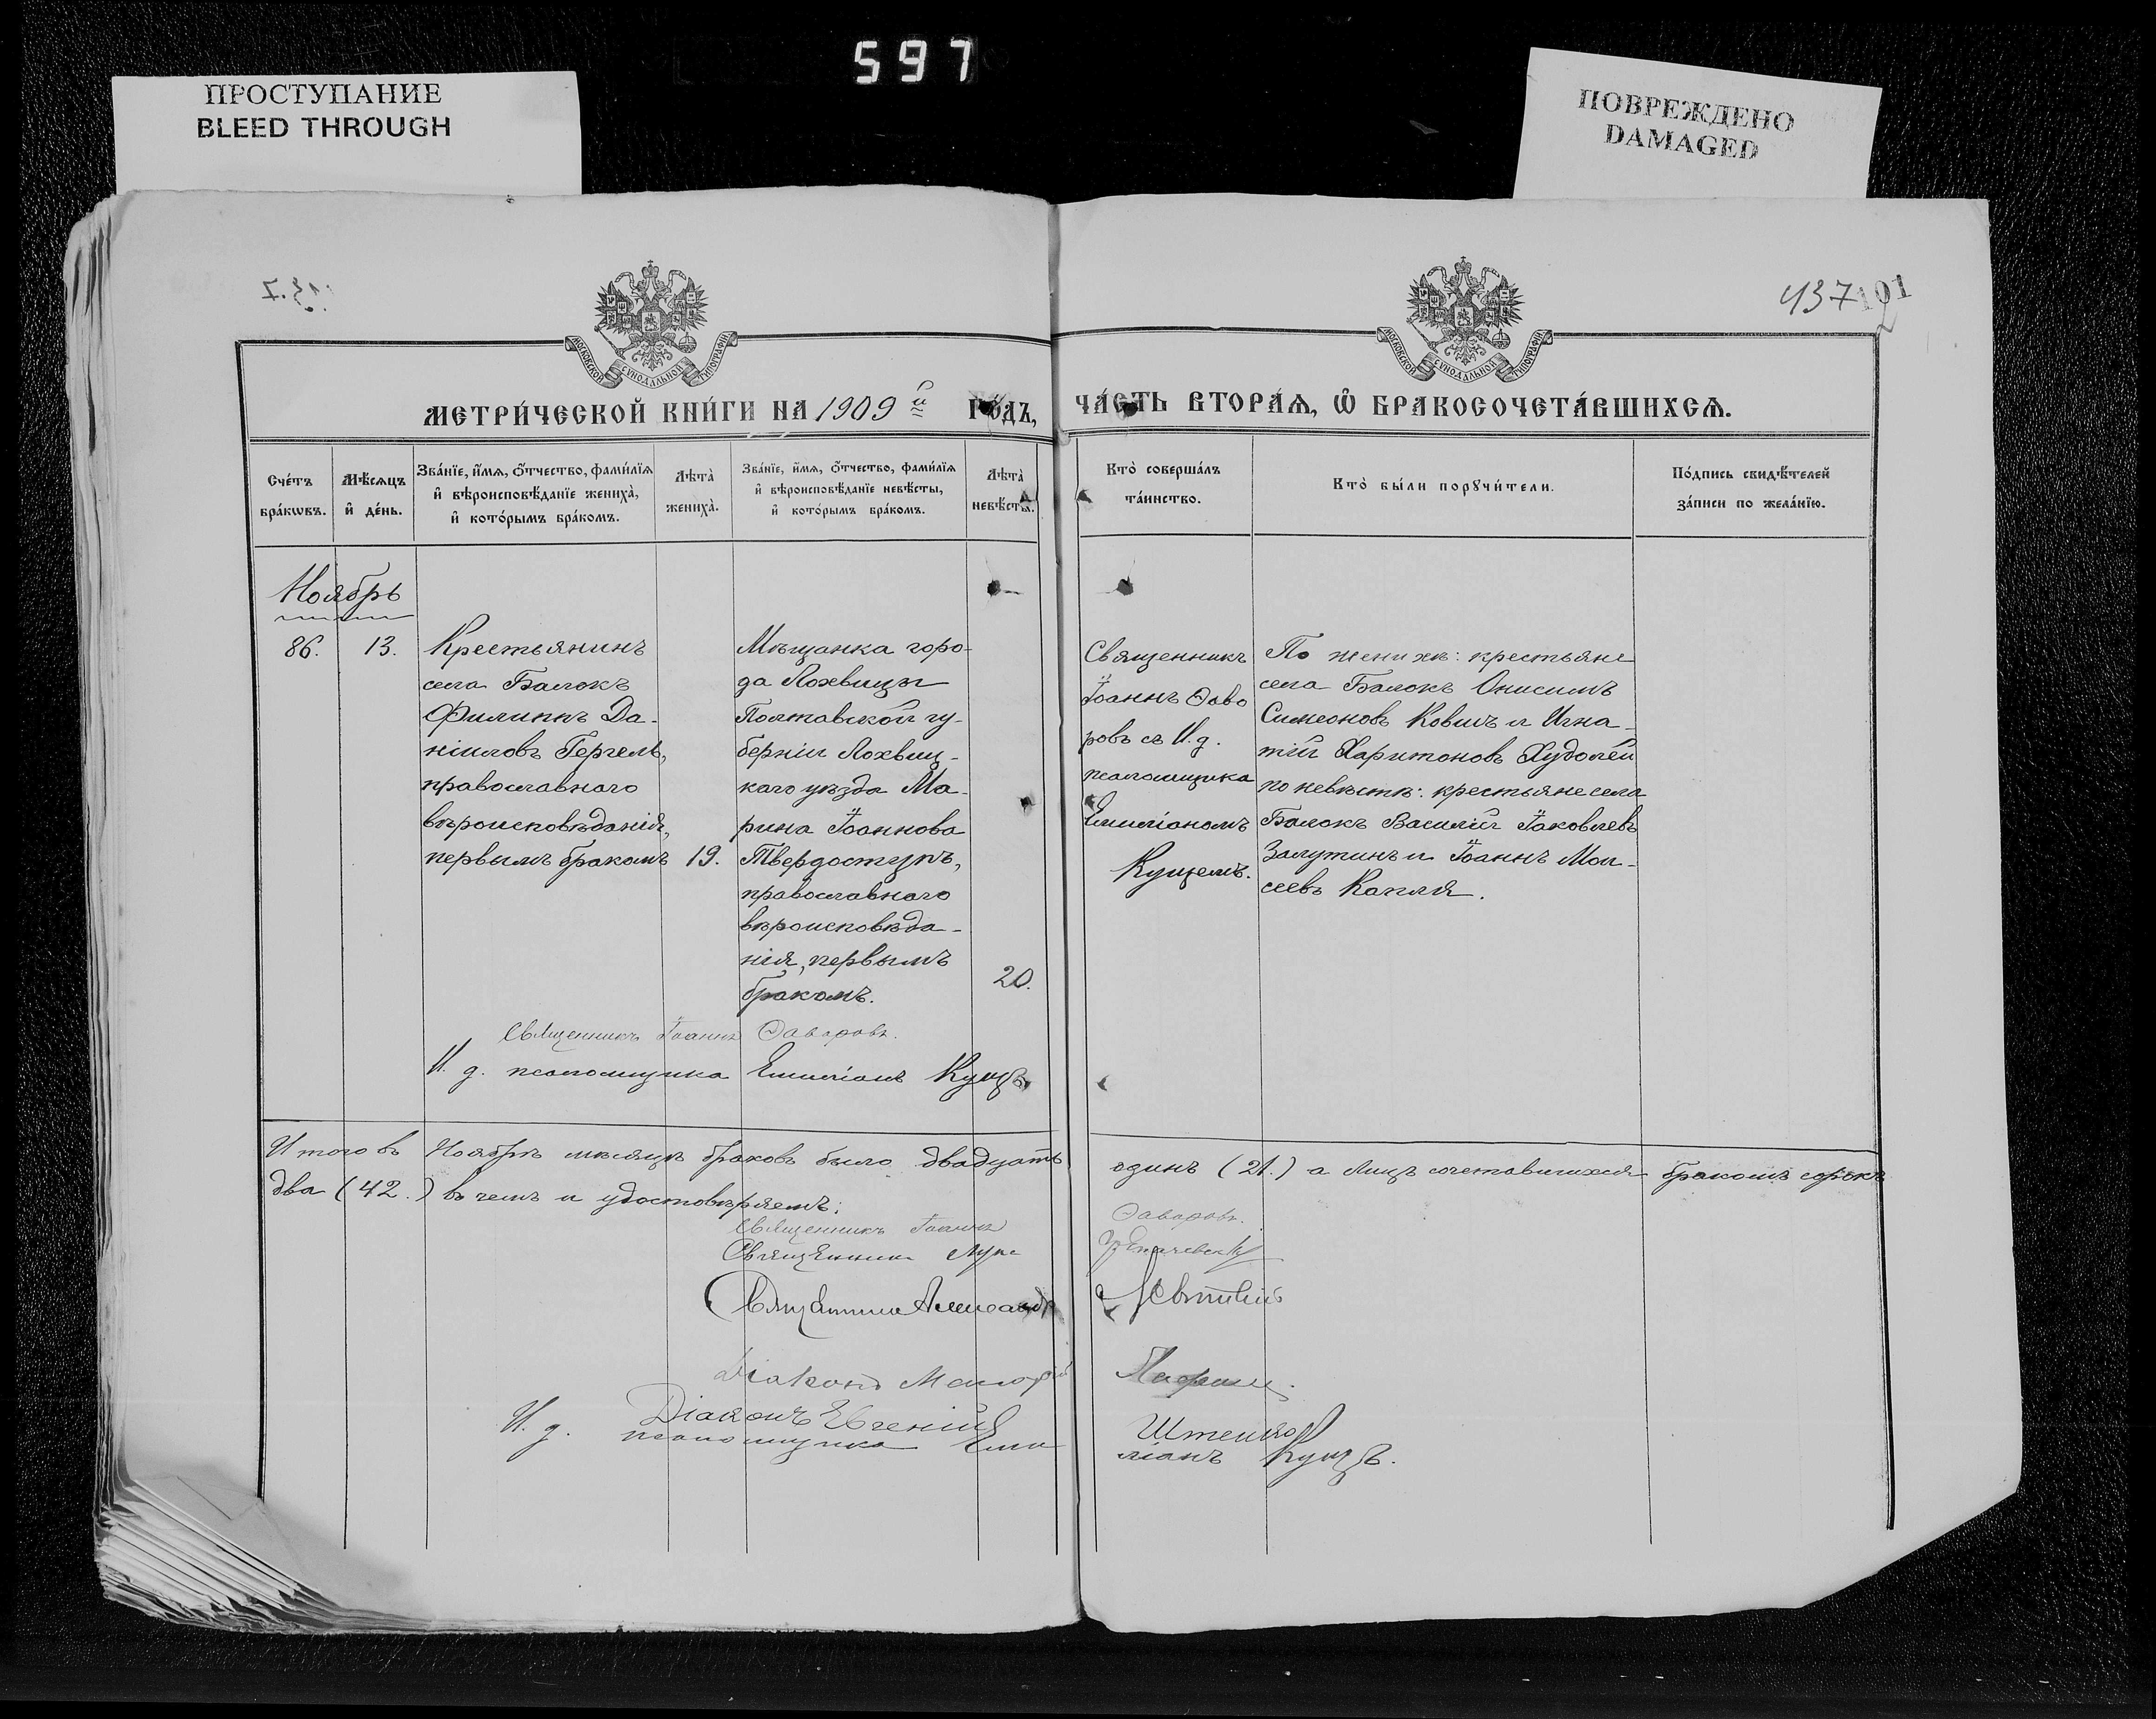 597
ПРОСТУПАНИЕ
BLEED THROUGH
ПОВРЕЖДЕНО
DAMAGED
437
101
МОСКОВСКОЙ СУНОДАЛЬНОЙ ТИПОГРАФІИ
МОСКОВСКОЙ СУНОДАЛЬНОЙ ТИПОГРАФІИ
МЕТРИ́ЧЕСКОЙ КНИ́ГИ НА 1909й ГО́ДЪ,
ЧА́СТЬ ВТОРА́Ѧ, Ѿ БРАКОСОЧЕТА́ВШИХСѦ.
Сче́тъ
бра́кѡвъ.
Мѣ́сяцъ
и҆ де́нь.
Зва́нїе, и҆́мѧ, ѻ҆́тчество, фами́лїѧ
и҆ вѣроисповѣ́данїе жениха̀,
и҆ кото́рымъ бра́комъ.
Лѣта̀
жениха̀.
Зва́нїе, и҆́мѧ, ѻ҆́тчество, фами́лїѧ
и҆ вѣроисповѣ́данїе невѣ́сты,
и҆ кото́рымъ бра́комъ.
Лѣта̀
невѣ́сты.
Кто̀ соверша́лъ
та́инство.
Кто̀ бы́ли порꙋчи́тели.
По́дпись свидѣ́телей
за́писи по жела́нїю.
Ноябрь
86.
13.
Крестьянинъ
села Балокъ
Филиппъ Да-
ніиловъ Гергель,
православнаго
вѣроисповѣданія,
первымъ бракомъ
19.
Мѣщанка горо-
да Лохвицы
Полтавской гу-
берніи Лохвиц-
каго уѣзда Ма-
рина Іоаннова
Твердоступъ,
православнаго
вѣроисповѣда-
нія, первымъ
бракомъ.
20.
Священникъ
Іоаннъ Ѳаво
ровъ съ И. д.
псаломщика
Емиліаномъ
Кущемъ.
По женихѣ: крестьяне
села Балокъ Онисимъ
Симеоновъ Ковшъ и Игна-
тій Харитоновъ Худолей
по невѣстѣ: крестьяне села
Балокъ Василій Іаковлевъ
Залутинъ и Іоаннъ Мои-
сеевъ Капля.
Священникъ Іоаннъ Ѳаворовъ.
И. д. псаломщика Емиліанъ Кущъ
Итого въ Ноябрѣ мѣсяцѣ браковъ было двадцать одинъ (21.) а лицъ сочетавшихся бракомъ сорокъ
два (42.) въ чемъ и удостовѣряемъ:
Священникъ Іоаннъ Ѳаворовъ.
Священникъ
Священникъ Александръ
Діаконъ
Діаконъ Евгеній Штепко
И. д. псаломщика Емиліанъ Кущъ.